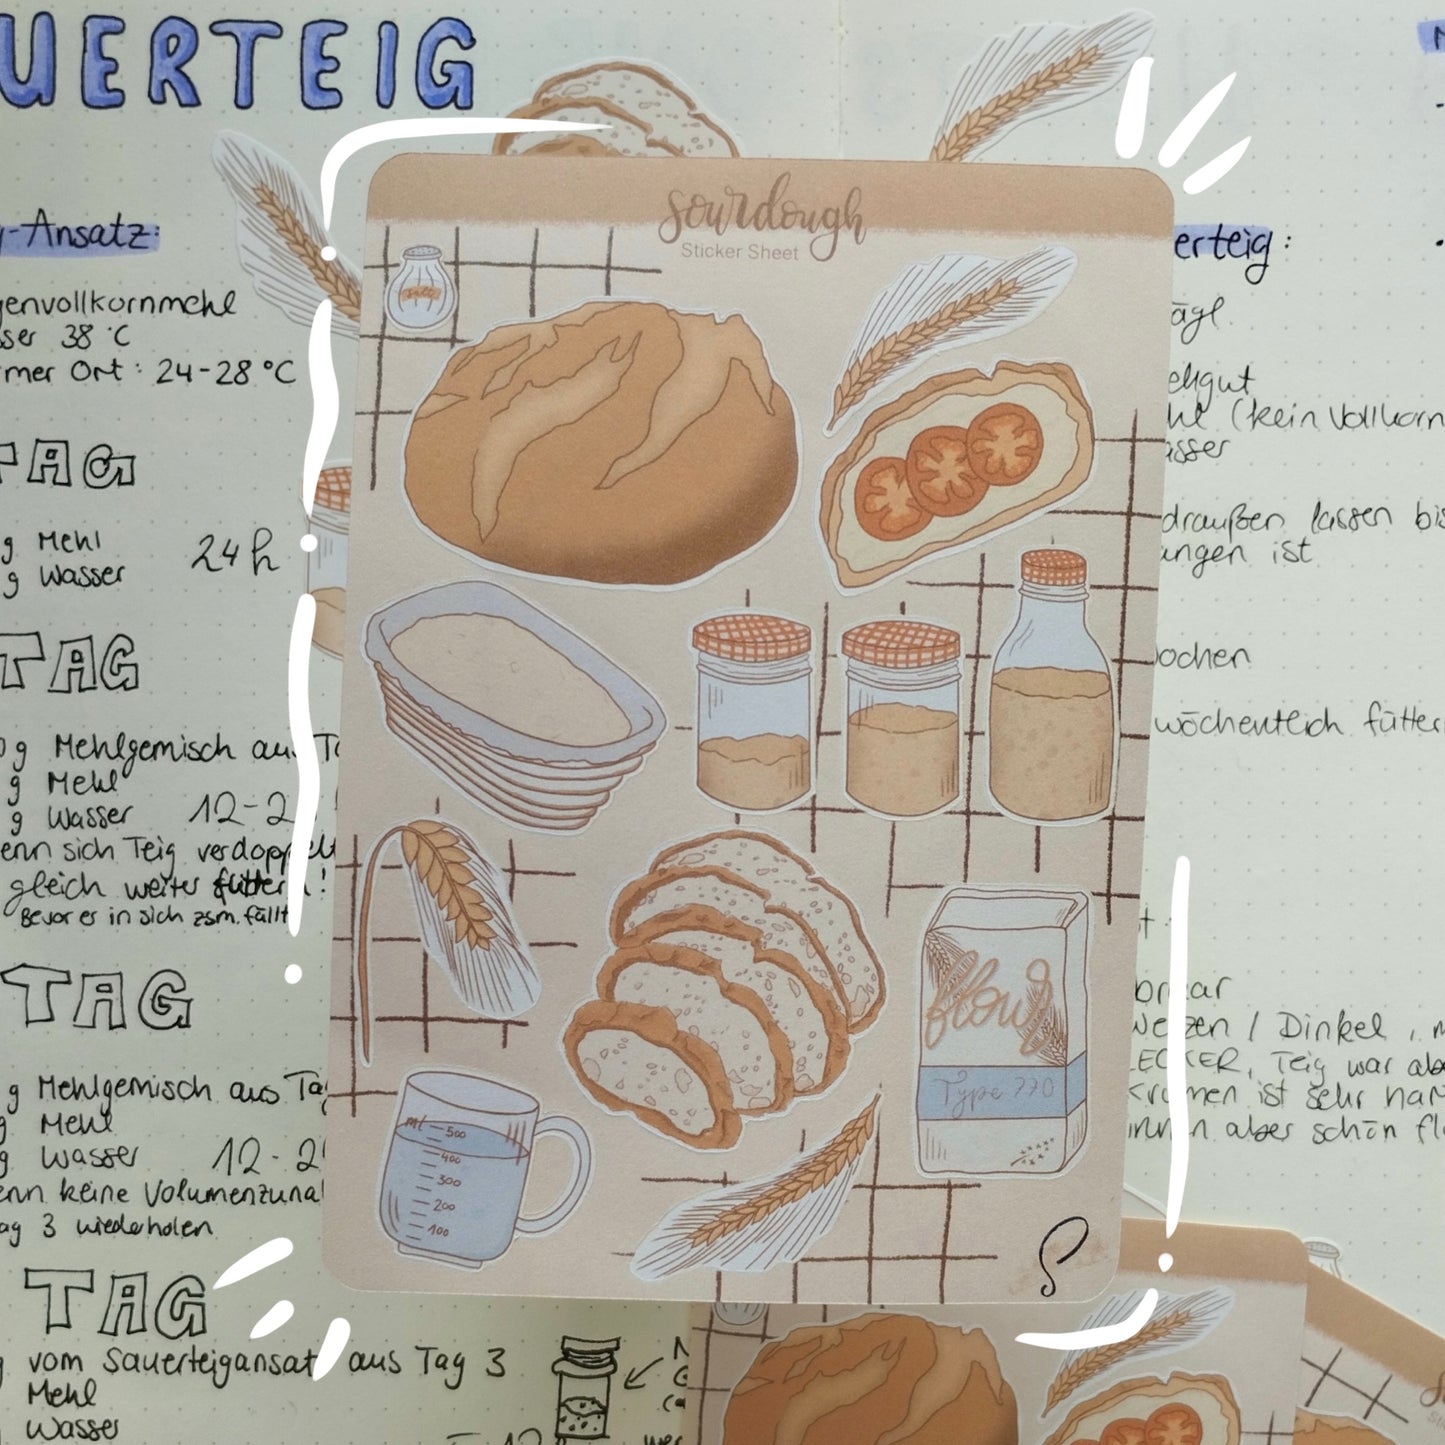 UERTEIG
-Ansatz:
genvollkornmehl
sser 38°C
rmer Ort: 24-28°C
TAG
g Mehl
g Wasser
24h
TAG
g Mehlgemisch aus
g Mehl
g Wasser 12-2
enn sich Teig verdoppelt
gleich weiter füttern!
Bevor er in sich zsm. fällt
TAG
g Mehlgemisch aus Tag
Mehl
g Wasser 12-2
enn keine Volumenzuna
ag 3 wiederholen
TAG
vom Sauerteigansatz aus Tag 3
Mehl
Wasser
sourdough
Sticker Sheet
salt
flour
Type 770
ml
500
400
300
200
100
erteig:
ägl.
ehl (kein Vollkorn
asser
draußen lassen bis
angen ist
wochen
wöchentlich fütter
Weizen / Dinkel,
LECKER, Teig war abe
Krumen ist sehr
innen aber schön